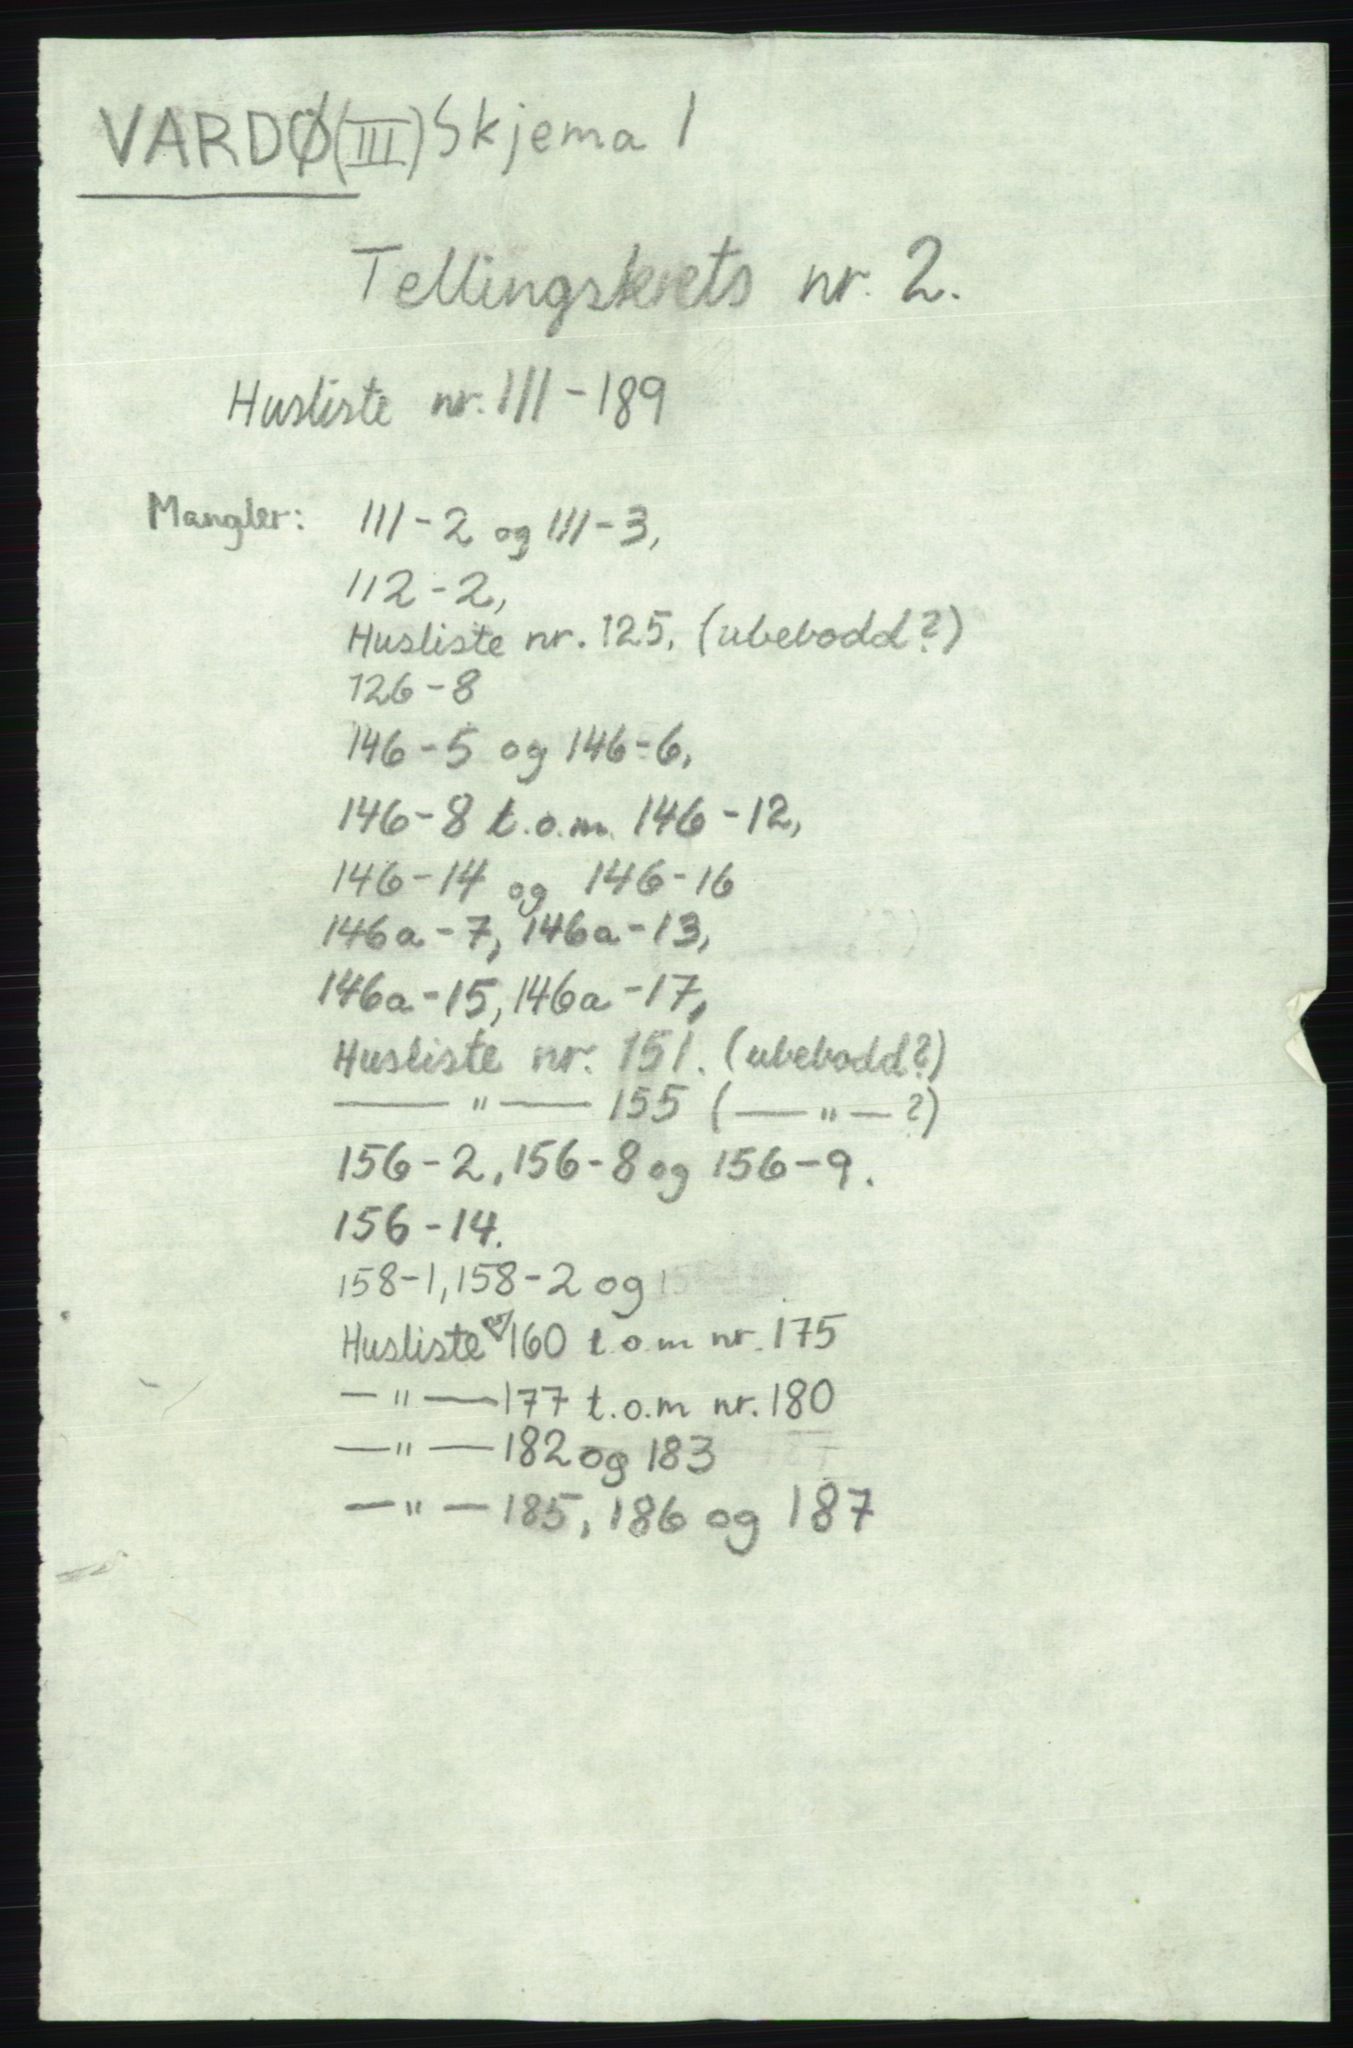 VARDØ (III) Skjema 1
Tellingskrets nr. 2.
Husliste nr. 111 - 189
Mangler: 111 - 2 og 111 - 3,
112 - 2,
Husliste nr. 125. (ubebodd?)
126 - 8
146 - 5 og 146 - 6,
146 - 8 t.o.m. 146 - 12,
146 - 14 og 146 - 16
146a - 7, 146a - 13,
146a - 15, 146a - 17,
Husliste nr. 151. (ubebodd?)
— " — 155 ( — " — ?)
156 - 2, 156 - 8 og 156 - 9.
156 - 14.
158 - 1, 158 - 2 og
Husliste nr 160 t.o.m nr. 175
— " — 177 t.o.m nr. 180
— " — 182 og 183
— " — 185, 186 og 187